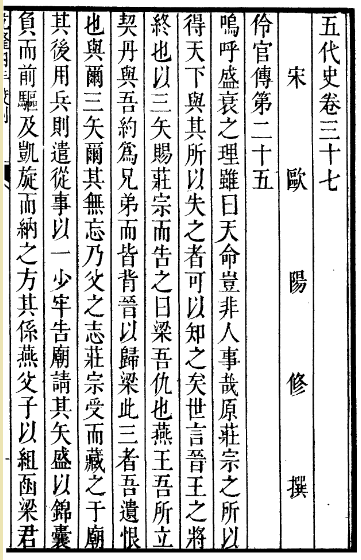 五代史卷三十七
宋歐陽修撰
伶官傳第二十五
嗚呼盛衰之理雖曰天命豈非人事哉原莊宗之所以
得天下與其所以失之者可以知之矣世言晉王之將
終也以三矢賜莊宗而告之曰梁吾仇也燕王吾所立
契丹與吾約爲兄弟而皆背晉以歸梁此三者吾遺恨
也與爾三矢爾其無忘乃父之志莊宗受而藏之于廟
其後用兵則遣從事以一少牢告廟請其矢盛以錦囊
負而前驅及凱旋而納之方其係燕父子以組函梁君